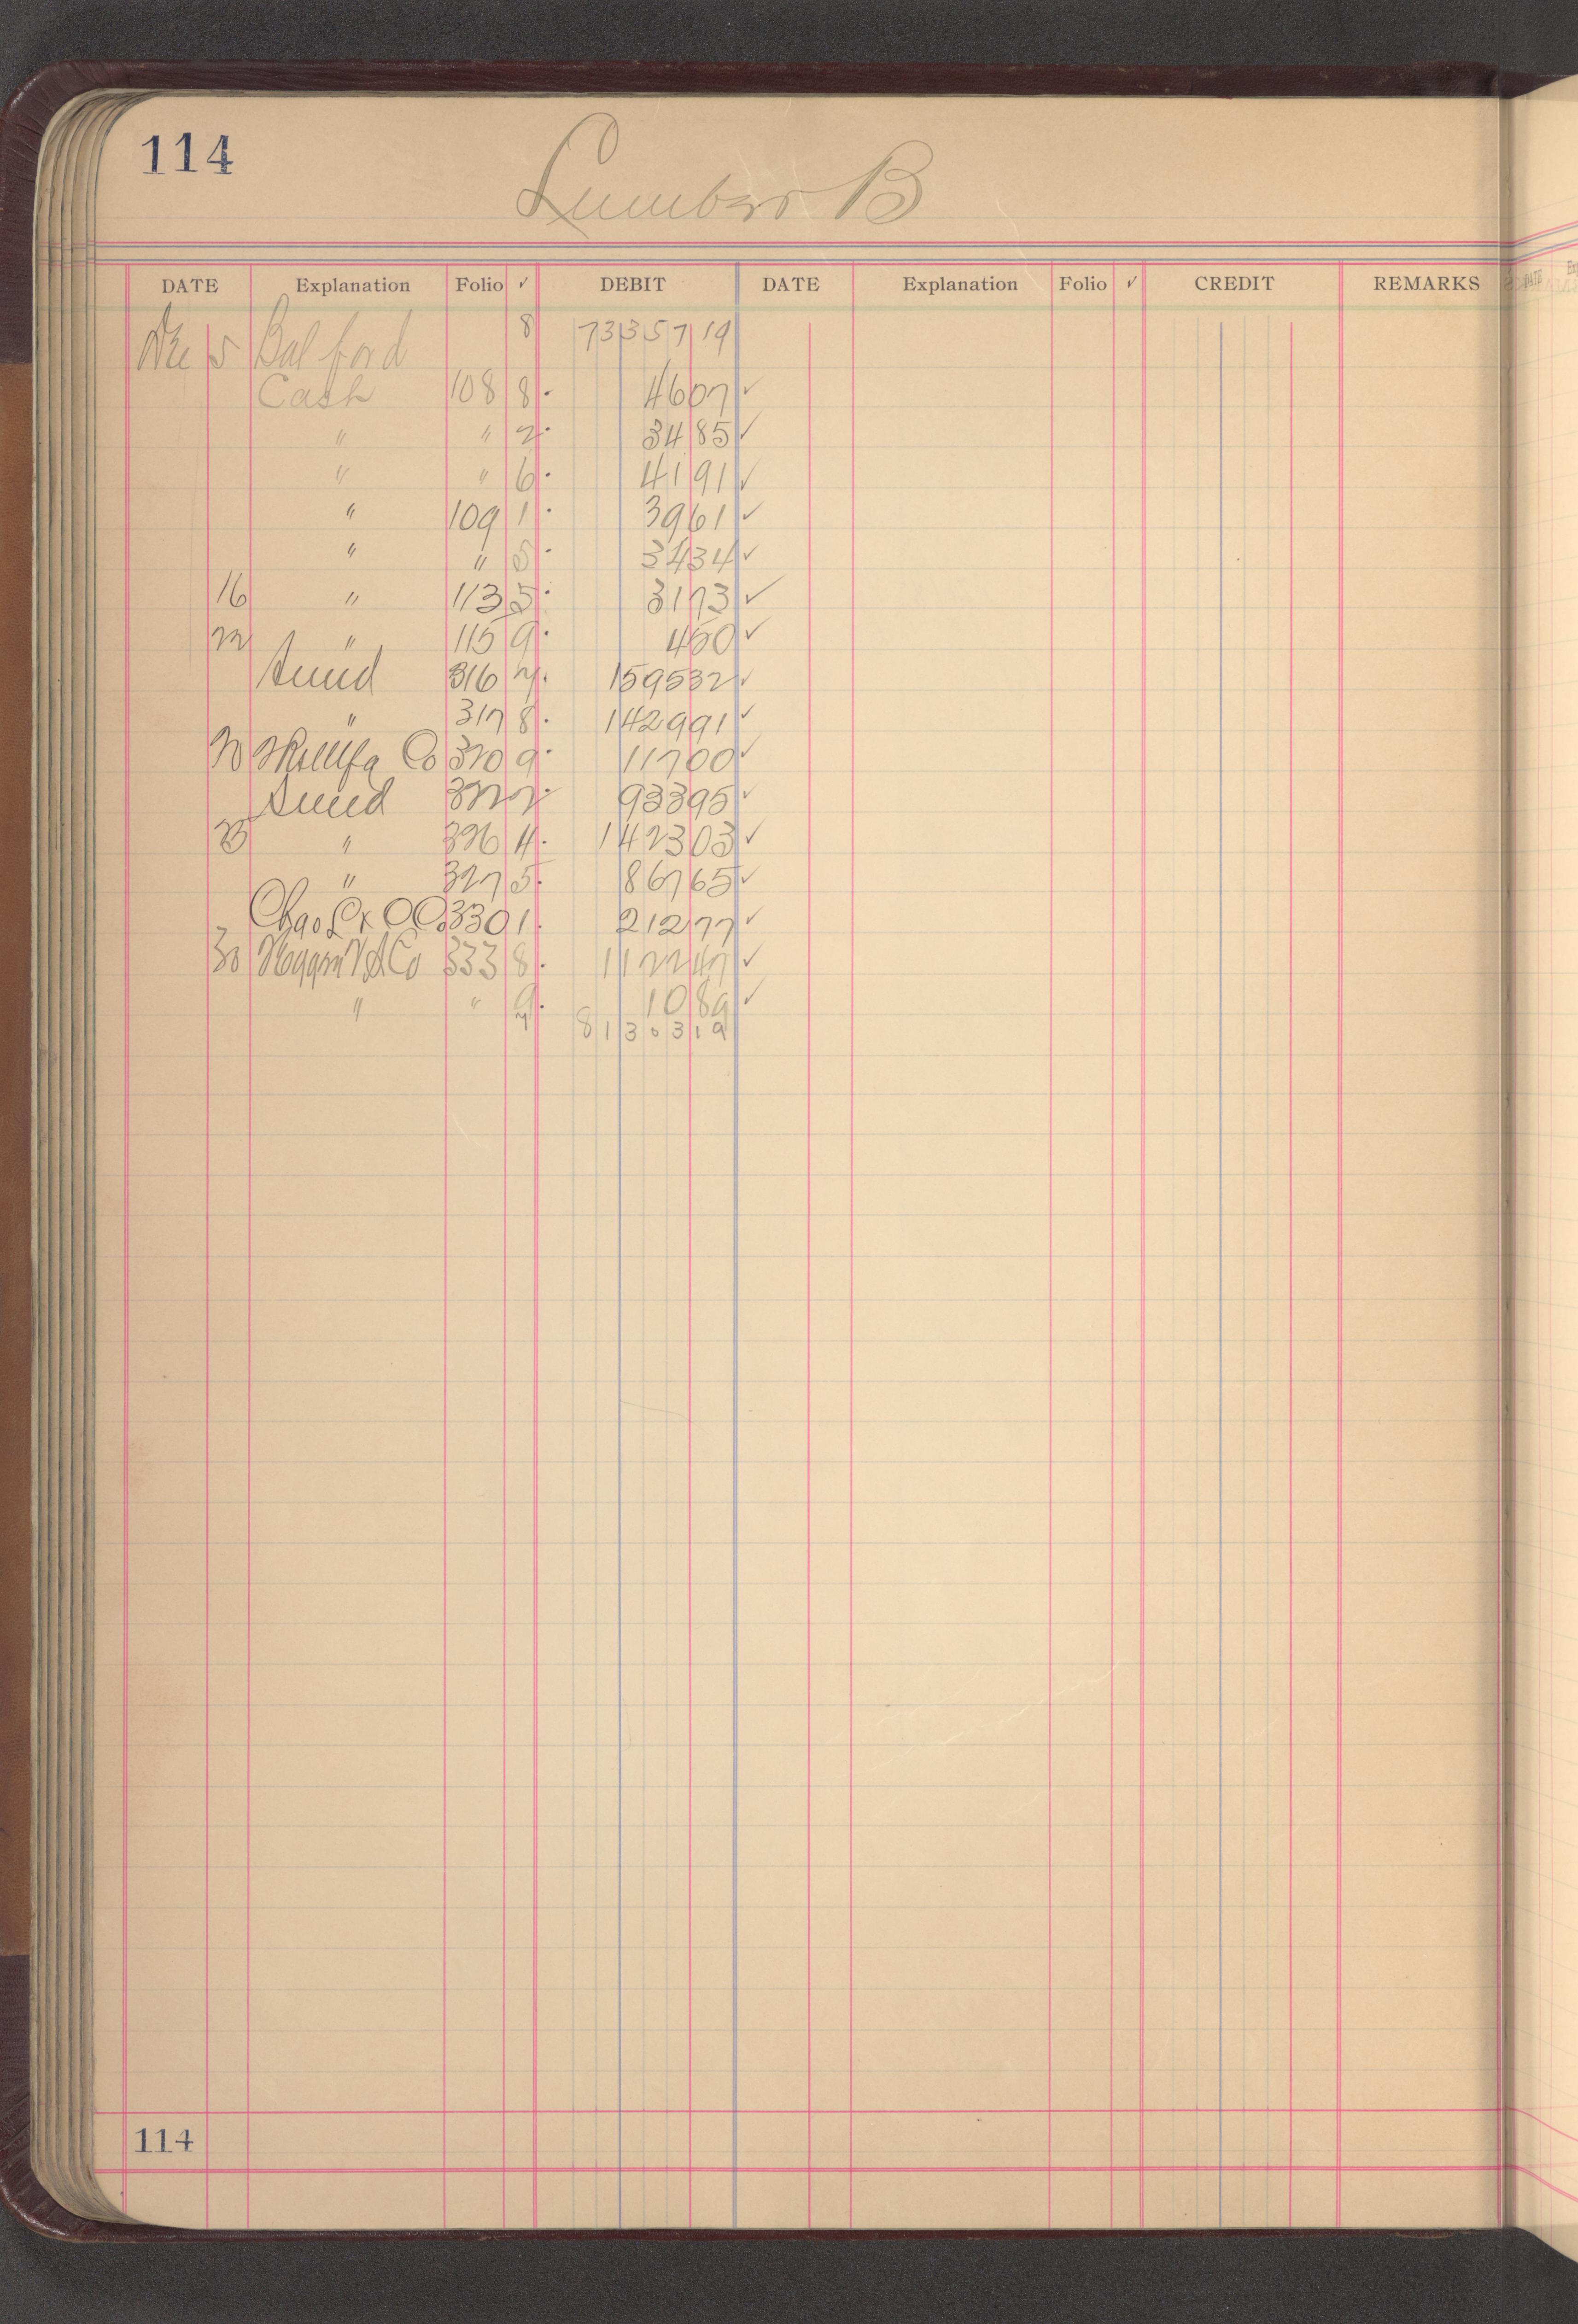 114
Lumber B
DATE Explanation Folio ✓ DEBIT DATE Explanation Folio ✓ CREDIT REMARKS
Dec 5 Bal ford 8 7335719
Cash 108 8 4607 ✓
" " 2 3485 ✓
" " 6 4191 ✓
" 109 1 3961 ✓
" " 5 3434 ✓
16 " 113 5 3173 ✓
22 " 115 9 450 ✓
Sund 316 7 159532 ✓
" 317 8 142991 ✓
20 Co 320 9 11700 ✓
Sund 322 2 93395 ✓
23 " 326 4 142303 ✓
" 327 5 86765 ✓
Chas 330 1 21277 ✓
30 Co 333 8 112247 ✓
" " 9 1089 ✓
8130319
114